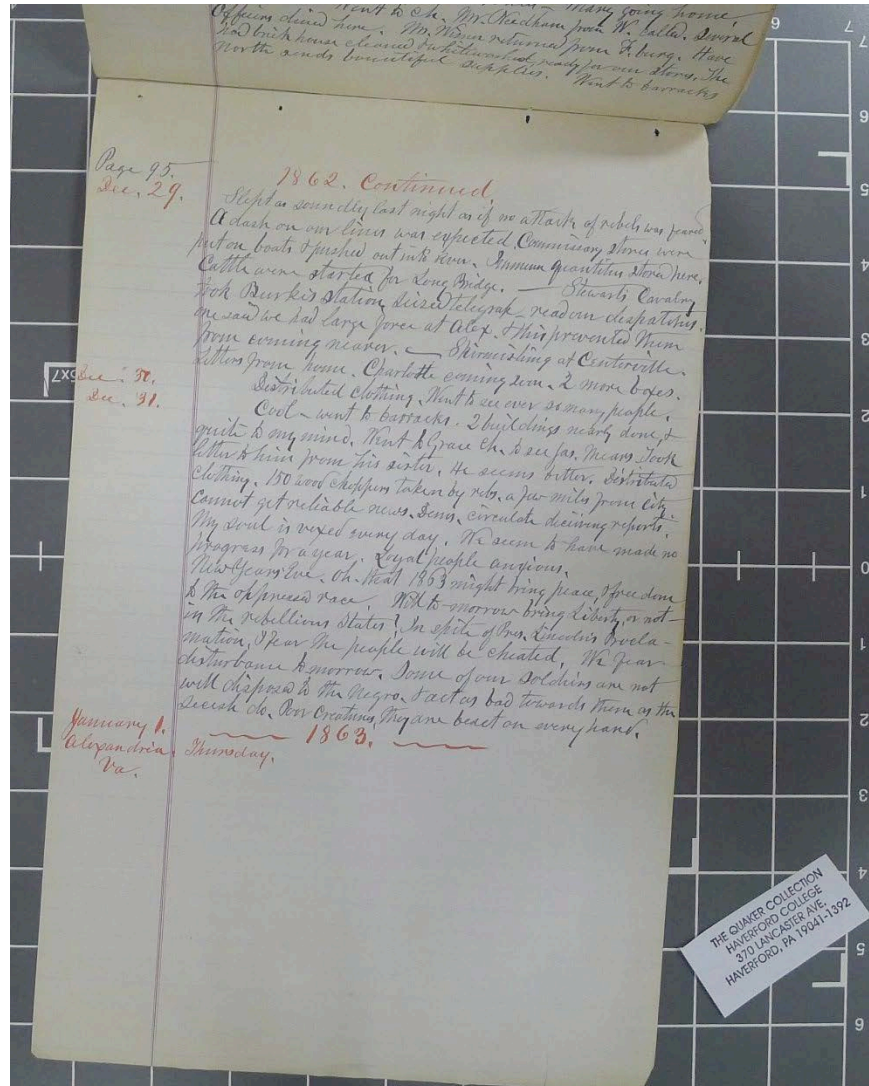 Many going home.
Went to ch. Mr. Needham from W. called. Several
Officers dined here. Mr. returned from F.burg. Have
had brick house cleaned & whitewashed, ready for our stores. The
North sends bountiful supplies. Went to barracks
Page 95.
1862. Continued.
Dec. 29.
Slept as soundly last night as if no attack of rebels was feared.
A dash on our lines was expected. Commissary stores were
put on boats & pushed out into river. Immense quantities stored here.
Cattle were started for Long Bridge. — Stewart's Cavalry
took Burkis station, seized telegrap— read our dispatches.
one said we had large force at Alex. & this prevented them
from coming nearer. — Skirmishing at Centerville.
Letters from home. Charlotte coming soon. 2 more boxes.
Dec. 30.
Distributed clothing. Went to see ever so many people.
Dec. 31.
Cool — went to barracks. 2 buildings nearly done, &
quite to my mind. Went to Grace Ch. to see Jas. Means. Took
letter to him from his sister. He seems better. Distributed
clothing. 150 wood choppers taken by rebs. a few miles from city.
Cannot get reliable news. Dems. circulate deceiving reports.
My soul is vexed every day. We seem to have made no
progress for a year. Loyal people anxious.
New Years Eve. Oh. that 1863 might bring peace, & freedom
to the oppressed race. Will to-morrow bring Liberty, or not—
in the rebellious States? In spite of Pres. Lincoln's Procla-
mation, I fear the people will be cheated. We fear
disturbance to morrow. Some of our soldiers are not
well disposed to the Negro, & act as bad towards them as the
Secesh do. Poor Creatures, they are beset on every hand.
1863.
January 1.
Alexandria. Thursday.
Va.
THE QUAKER COLLECTION
HAVERFORD COLLEGE
370 LANCASTER AVE.
HAVERFORD, PA 19041-1392